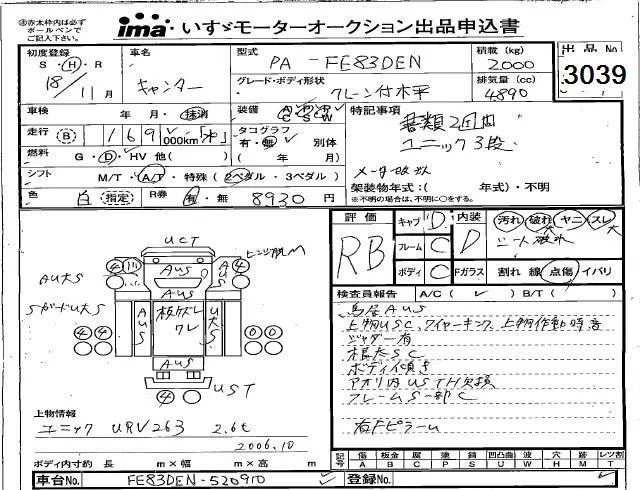 赤太枠内は必ず
ボールペンで
ご記入下さい。
ima いすゞモーターオークション出品申込書
初度登録 S・H・R 18/11月
車名 キャンター
型式 PA-FE83DEN
積載(kg) 2,000
出品No. 3039
グレード・ボディ形状 クレーン付木平
排気量(cc) 4890
車検 年・月・抹消
装備 AC PS PW
特記事項
書類2週間
ユニック3段
走行 B 169,000km
タコグラフ 有・無 別体 ( 年 月)
燃料 G・D・HV 他( )
シフト M/T・A/T・特殊(2ペダル・3ペダル)
架装物年式:( 年式)・不明
※不明の場合は、不明に○をする。
色 白 指定 R券 有・無 8930円
評価 RB
キャブ D 内装 D 汚れ 破れ ヤニ スレ
シート破れ
フレーム C
ボディ C Fガラス 割れ 線 点傷 イバリ
検査員報告 A/C( ✓ ) B/T( )
鳥居AUS
上物USC,ワイヤーキンク,上物作動時音
ジャダー有
根太SC
ボディ傾き
アオリ内USTH欠損
フレームS一部C
右FピラーU
UCT
AUS
A大S
Sガード U大S
UST
上物情報
ユニック URV263 2.6t
2006.10
ボディ内寸約 長 m×幅 m×高 m
記号 傷A 板金B 腐C 塗P 錆S 凹凸曲U 波W 穴H 跡M レツ割T
車台No. FE83DEN-520910
登録No.